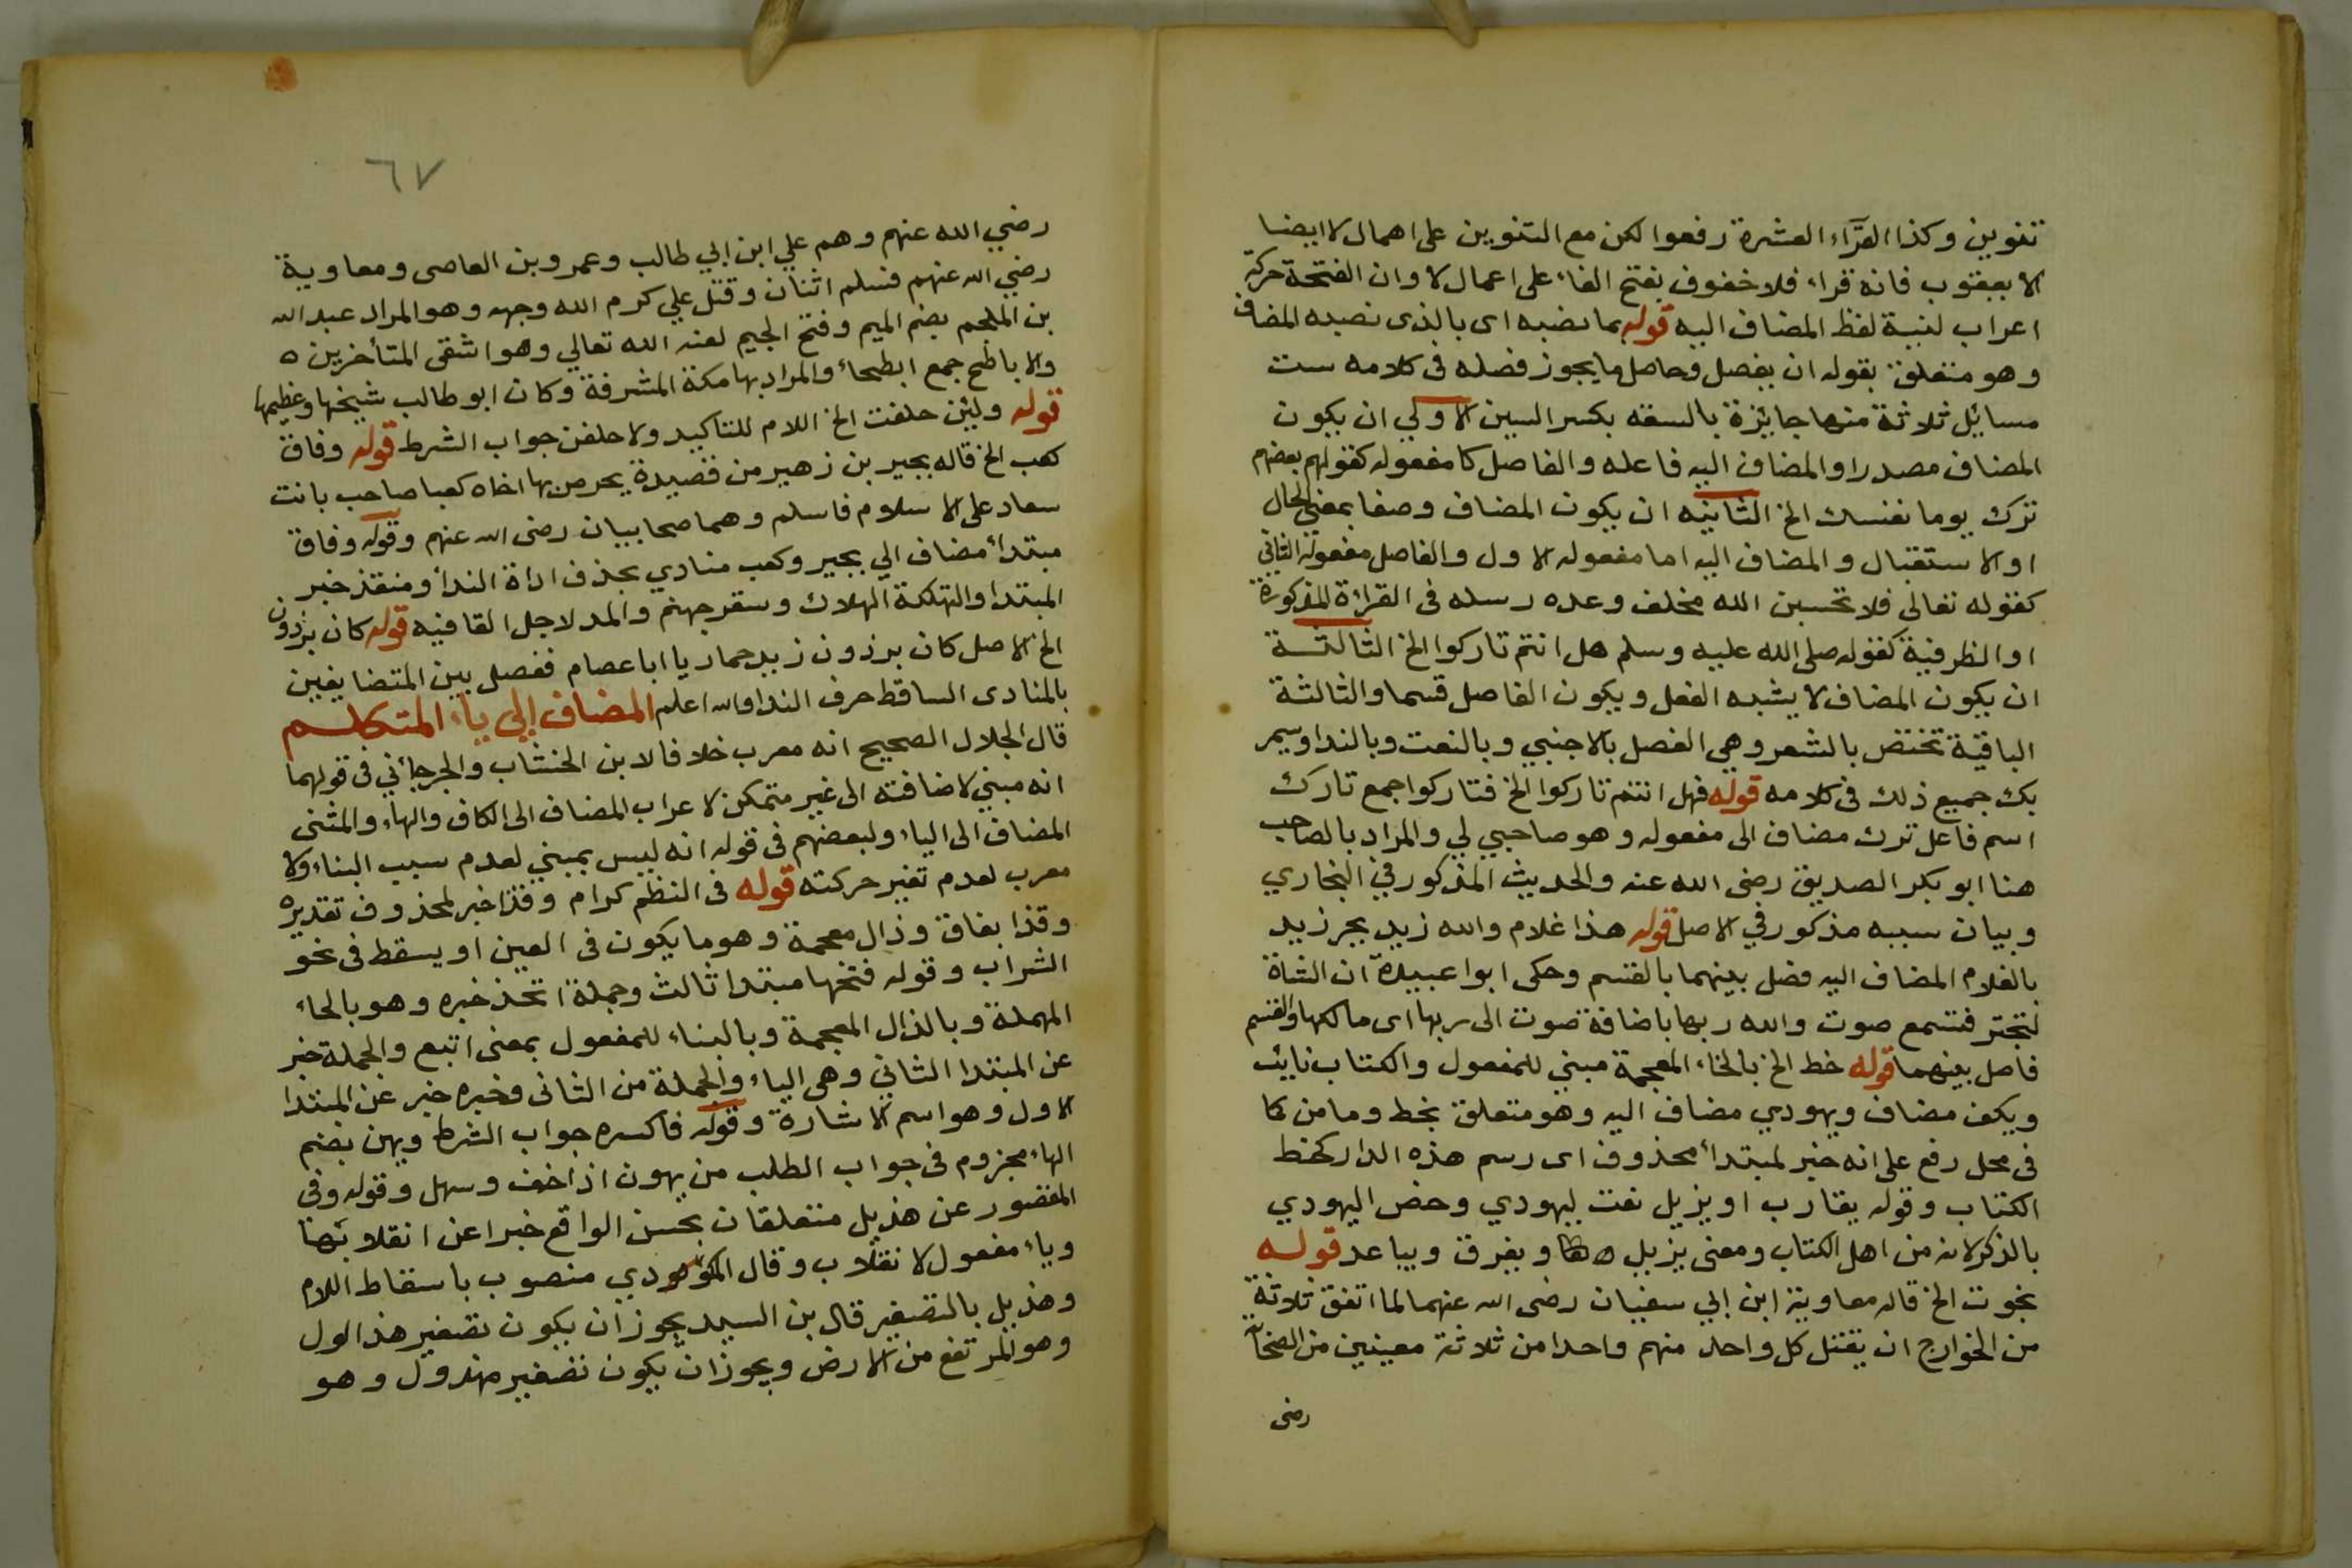 تنوين وكذا القرّاء العشرة رفعوا لكن مع التنوين على اهمال لا ايضا
الا يعقوب فانه قراء فلا خفوف بفتح الفاء على اعمال لا وان الفتحة حركة
اعراب لنية لفظ المضاف اليه قوله ما نصبه اى بالذى نصبه المضاف
وهو متعلق بقوله ان يفصل وحاصل ما يجوز فصله فى كلامه ست
مسايل ثلاثة منها جايزة بالسعه بكسر السين الاولي ان يكون
المضاف مصدرا والمضاف اليه فاعله والفاصل كا مفعوله كقولهم بعضهم
ترك يوما نفسك الخ الثانيه ان يكون المضاف وصفا بمعنى الحال
او الاستقبال والمضاف اليه اما مفعوله الاول والفاصل مفعوله الثاني
كقوله تعالى فلا تحسبن الله مخلف وعده رسله فى القرأة المذكورة
او الظرفية كقوله صلى الله عليه وسلم هل انتم تاركوا الخ الثالثة
ان يكون المضاف لا يشبه الفعل ويكون الفاصل قسما والثالثة
الباقية تختض بالشعر وهي الفصل بالاجنبي وبالنعت وبالندا وسيمر
بك جميع ذلك فى كلامه قوله فهل انتم تاركوا الخ فتاركوا جمع تارك
اسم فاعل ترك مضاف الى مفعوله وهو صاحبي لي والمراد بالصاحب
هنا ابو بكر الصديق رضى الله عنه والحديث المذكور في البخاري
وبيان سببه مذكور في الاصل قوله هذا غلام والله زيد بجر زيد
بالغلام المضاف اليه فصل بينهما بالقسم وحكى ابوا عبيدة ان الشاة
لتجتر فتسمع صوت والله ربها باضافة صوت الى ربها اى مالكها والقسم
فاصل بينهما قوله خط الخ بالخاء المعجمة مبني للمفعول والكتاب نايب
وبكف مضاف ويهودي مضاف اليه وهو متعلق بخط وما من كما
فى محل رفع على انه خبر لمبتدأ محذوف اى رسم هذه الدار كخط
الكتاب وقوله يقارب او يزيل نعت ليهودي وخص اليهودي
بالذكر لانه من اهل الكتاب ومعنى يزيل ويفرق ويباعد قوله
نجوت الخ قاله معاوية ابن ابي سفيان رضى الله عنهما لما اتفق ثلاثة
من الخوارج ان يقتل كل واحد منهم واحدا من ثلاثة معينين من الصحآ
رضى
٦٧
رضي الله عنهم وهم علي ابن ابي طالب وعمرو بن العاصى ومعاوية
رضي الله عنهم فسلم اثنان وقتل علي كرم الله وجهه وهو المراد عبد الله
بن الملجم بضم الميم وفتح الجيم لعنه الله تعالي وهو اشقى المتأخرين ه
والاباطح جمع ابطحاء والمراد بها مكة المشرفة وكان ابو طالب شيخها وعظيمها
قوله ولين حلفت الخ اللام للتاكيد ولاحلفن جواب الشرط قوله وفاق
كعب الخ قاله بجير بن زهير من قصيدة يحرص بها اخاه كعبا صاحب بانت
سعاد على الاسلام فاسلم وهما صحابيان رضى الله عنهم وقوله وفاق
مبتدأ مضاف الي بجير وكعب منادي بحذف اداة الندأ ومنقذ خبر
المبتدا والتهلكة الهلاك وسقر جهنم والمد لاجل القافيه قوله كان برذون
الخ الاصل كان برذون زيد حمار يا ابا عصام ففصل بين المتضايفين
بالمنادى الساقط حرف الندا والله اعلم المضاف الي ياء المتكلم
قال الجلال الصحيح انه معرب خلافا لابن الخشاب والجرجأني فى قولهما
انه مبني لاضافته الى غير متمكن لاعراب المضاف الى الكاف والهاء والمثنى
المضاف الى الياء ولبعضهم فى قوله انه ليس بمبني لعدم سبب البناء ولا
معرب لعدم تغير حركته قوله فى النظم كرام وقذا خبر لمحذوف تقديره
وقذا بقاف وذال معجمة وهو ما يكون فى العين او يسقط فى نحو
الشراب وقوله فتحها مبتدا ثالث وجملة اتحذ خبره وهو بالحاء
المهملة وبالذال المعجمة وبالبناء للمفعول بمعنى اتبع والجملة خبر
عن المبتدا الثاني وهى الياء والجملة من الثانى وخبره خبر عن المبتدا
الاول وهو اسم الاشارة وقوله فاكسره جواب الشرط ويهن بضم
الهاء مجزوم فى جواب الطلب من يهون اذا خف وسهل وقوله وفى
المقصور عن هذيل متعلقان بحسن الواقع خبرا عن انقلابها
وياء مفعول لانقلاب وقال المكودي منصوب باسقاط اللام
وهذيل بالتصغير قال بن السيد يجوز ان يكون تصغير هذالول
وهو المرتفع من الارض ويجوز ان يكون تصغير مهدول وهو